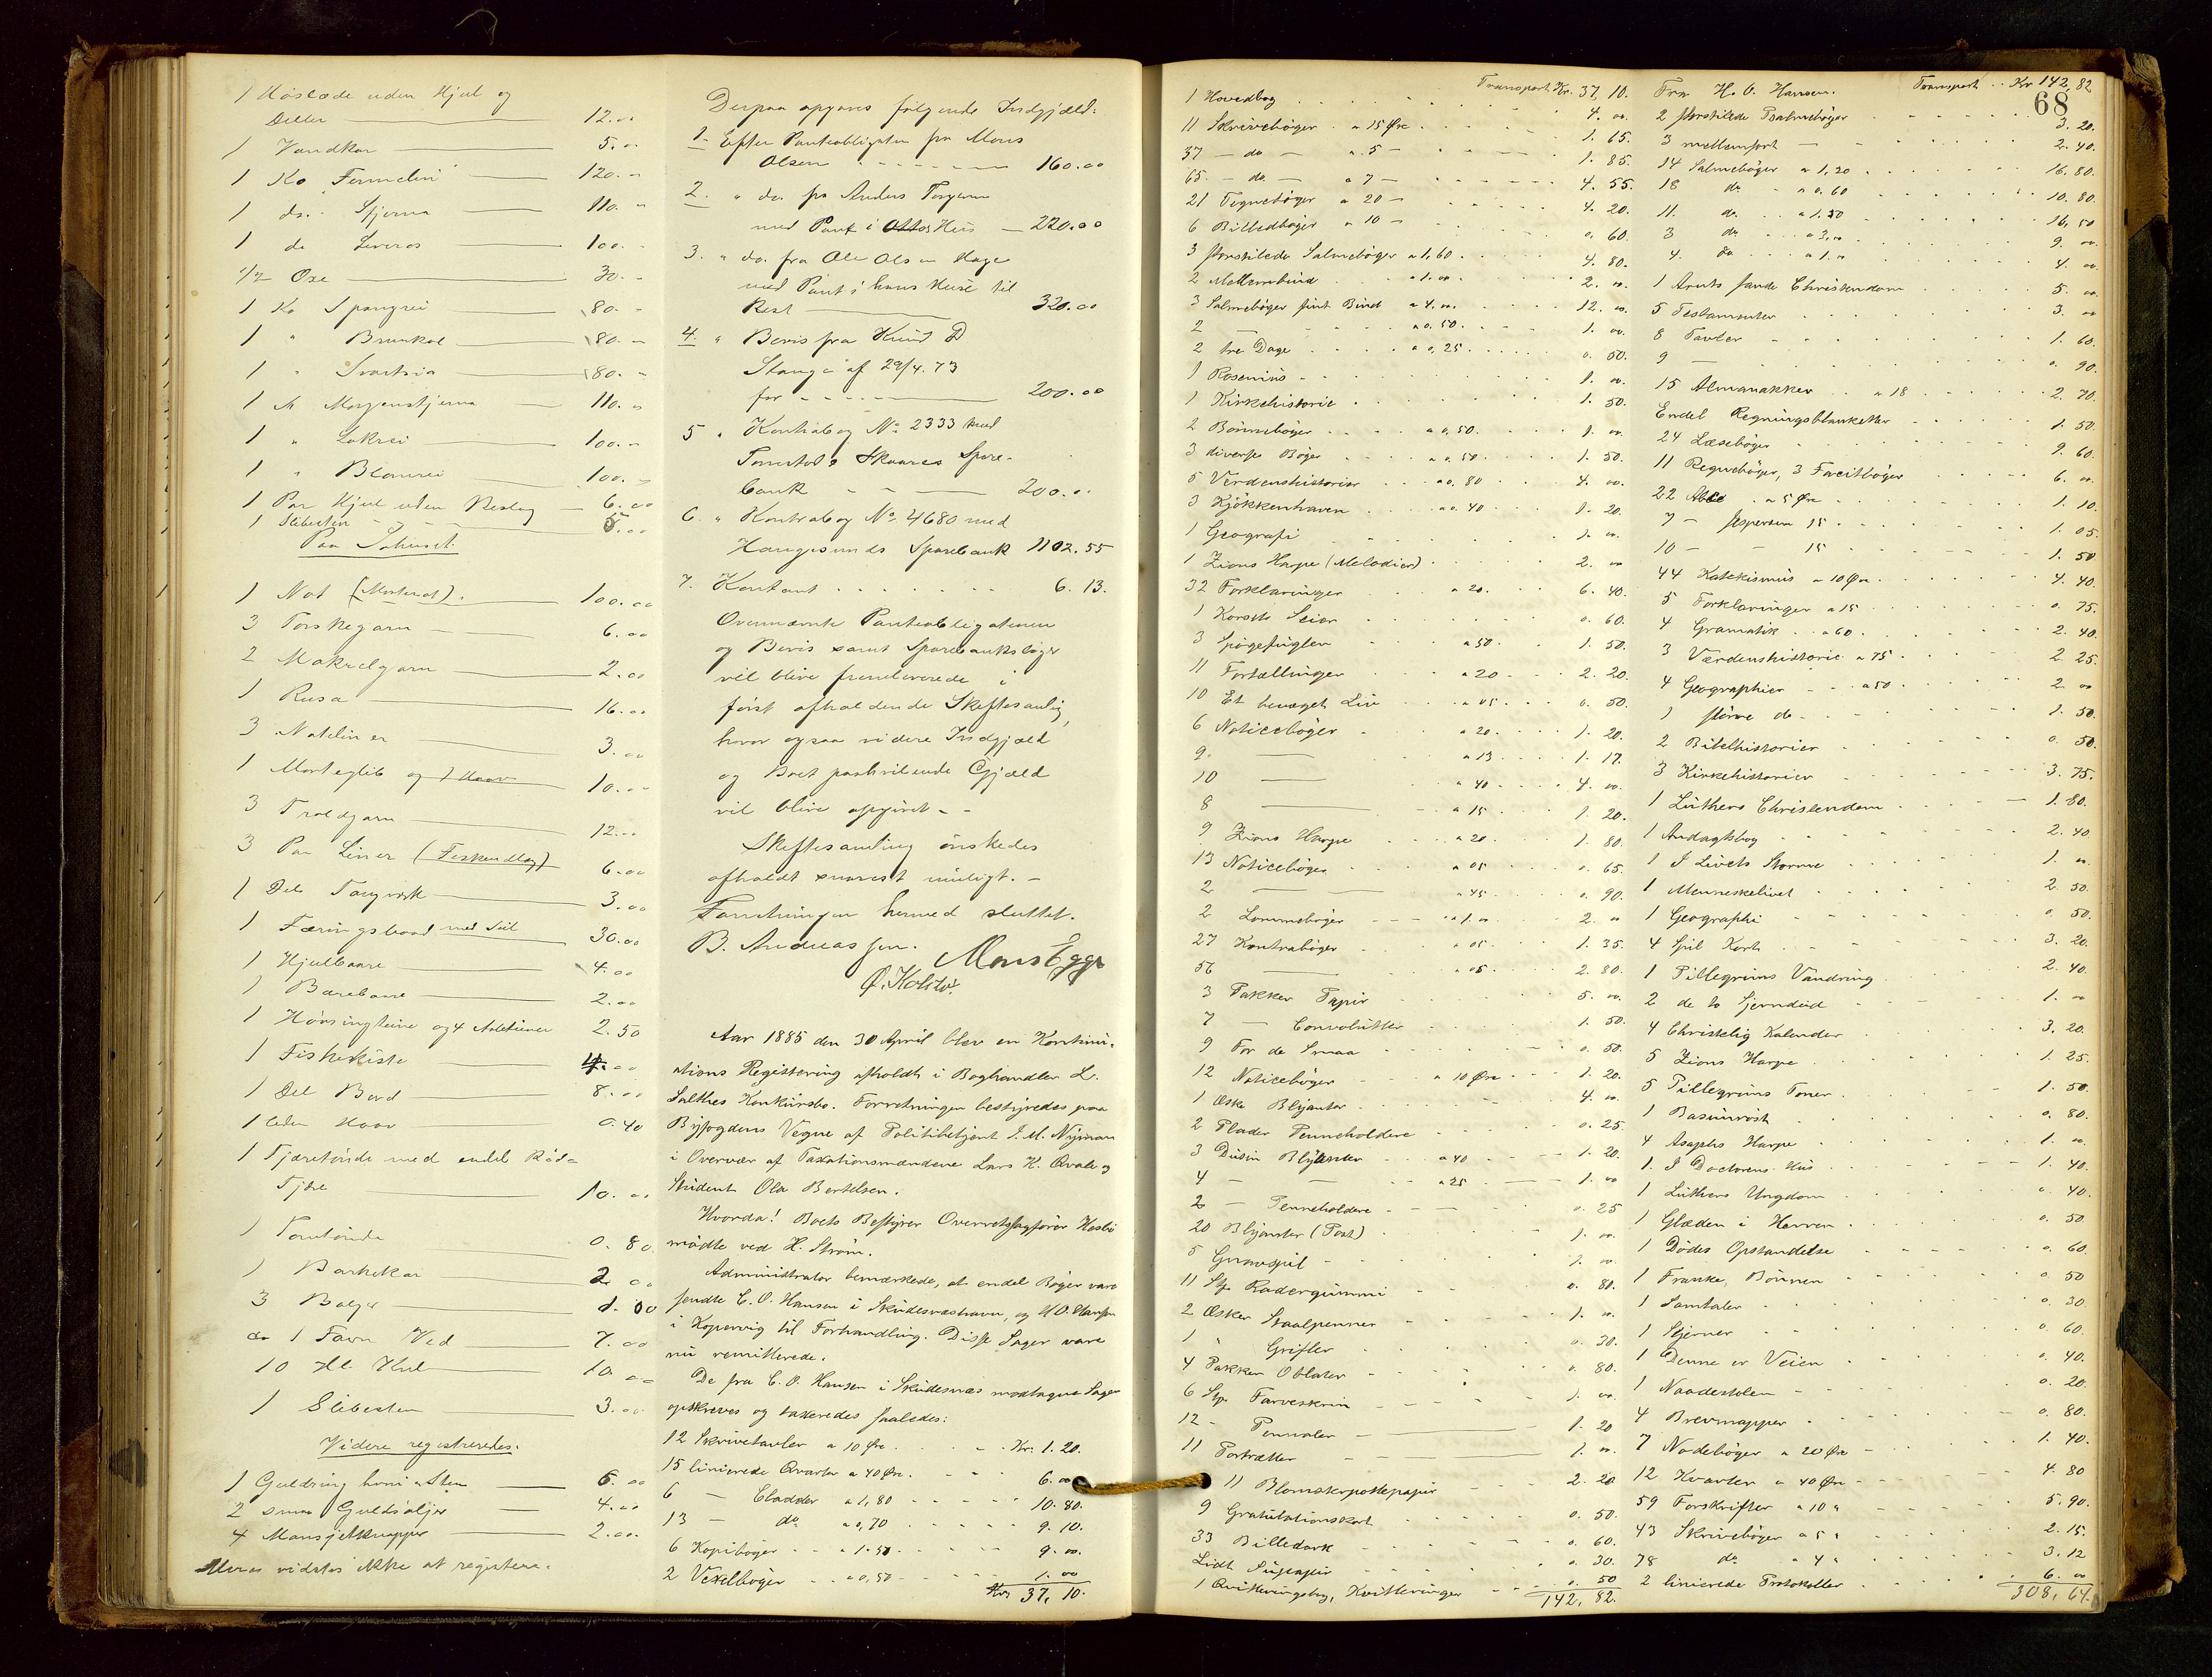 1 Höslæde uden Hjul og
Deller 12.00
1 Vandkar 5.00
1 Ko Fennelin 120.-
1 do. Stjerna 110.-
1 do Liveros 100.-
1/2 Oxe 30.-
1 Ko Spongrei 80.-
1 " Brunkol 80.-
1 " Svartsia 80.-
1 Morgenstjerna 110.-
1 " Lokrei 100.-
1 " Blanrei 100.-
1 Par Hjul uden Beslag 6.00
1 Slibesten 5.00
Paa Sohuset.
1 Not (Mortenot). 100.00
3 Torskegarn 6.00
2 Makrelgarn 2.00
1 Rusa 16.00
3 Notelin er 3.00
1 Morteglib og 1 Haav 10.00
3 Troldgarn 12.-
3 Par Liner (Fiskendlag) 6.00
1 Del Tougværk 3.00
1 Færingsbaad med Seil 30.00
1 Hjulbaare 4.00
1 Bærebaare 2.00
1 Hövsingteine og 4 Aaleteiner 2.50
1 Fiskekiste 4.00
1 Del Bord 8.00
1 liden Haav 0.40
1 Tjæretönde med endel Rød=
Tjære 10.00
1 Tomtönde 0.80
1 Barkekar 2.00
3 Balger 1.00
ca 1 Favn Ved 7.00
10 Hl Kul 10.00
1 Slibesten 3.00
Videre registreredes.
1 Guldring hvori Sten 6.00
2 smaa Guldsöljer 4.00
4 Mansjetknapper 2.00
Mere vidstes ikke at registere.
Derpaa opgaves følgende Indgjæld:
1. Efter Panteobligation fra Mons
Olsen 160.00
2. " do. fra Anders Torgersen
med Pant i Hus 220.00
3. " do. fra Ole Olsen Hage
med Pant i hans Huse til
Rest 320.00
4. " Bevis fra Knud D
Stange af 29/4.73
for 200.00
5 " Kontrabog No 2333 med
Torvestad & Skaares Spare-
bank 200.00
6. " Kontrabog No 4680 med
Haugesunds Sparebank 1102.55
7. Kontant 6.13.
Overnævnte Panteobligationer
og Bevis samt Sparebanksböger
vil blive fremleverede i
först afholdende Skiftesamling,
hvor ogsaa videre Indgjæld
og Boet paahvilende Gjæld
vil blive opgivet. -
Skiftesamling önskedes
afholdt snarest muligt. -
Forretningen hermed sluttet.
B. Andreassen. Mons Egge
Ø. Kolstø.
Aar 1885 den 30 April blev en Kontinu-
ations Registrering afholdt i Boghandler L.
Salthes Konkursbo. Forretningen bestyredes paa
Byfogdens Vegne af Politibetjent J. M. Nyman
i Overvær af Taxationsmændene Lars K. Qvale og
Student Ola Bertelsen.
Hvorda! Boets Bestyrer Overretssagfører Hasbö
mødte ved H. Strøm.
Administrator bemærkede, at endel Böger vare
sendte C. O. Hansen i Skudesnæshavn, og H. O. Hansen
i Kopervig til Forhandling. Disse Sager vare
nu remitterede.
De fra C. O. Hansen i Skudesnæs modtagne Sager
opskreves og taxeredes saaledes:
12 Skrivetavler a 10 Øre. Kr. 1.20.
15 linierede Qvarter a 40 Øre. 6.00
6 — Cladder a 1,80 10.80.
13 — do a 0,70 9.10.
6 Kopibøger a 1.50 9.00.
2 Vexelbøger a 0,50 1.00
Kr 37, 10.
Transport Kr. 37, 10.
1 Hovedbog 4.00.
11 Skrivebøger a 15 Øre 1.65.
37 — do — a 5 — 1.85.
65. — do — a 7 — 4.55.
21 Tegnebøger a 20 — 4.20.
6 Billedbøger a 10 — 0.60.
3 storstilede Salmebøger a 1,60. 4.80.
2 Mellembind a 1.00. 2.00.
3 Salmebøger fint Bind a 4.00. 12.00.
2 — a 0.50. 1.00.
2 tre Dage a 0,25. 0.50.
1 Rosenius 1.00.
1 Kirkehistorie 1.50.
2 Bønnebøger a 0,50. 1.00.
3 diverse Bøger a 0.50 1.50.
5 Verdenshistorier a 0.80 4.00.
3 Kjøkkenhaven a 0.40 1.20.
1 Geografi 1.00.
1 Zions Harpe (Melodier) 2.00
32 Forklaringer a 20. 6.40.
1 Korsets Seier 0.60.
3 Spøgefuglen a 50. 1.50.
11 Fortællinger a 20 2.20.
10 Et bevæget Liv a 05 0.50.
6 Noticebøger a 20. 1.20.
9. — a 13 1.17.
10 — a 40 4.00.
8 — a 15 1.20.
9 Zions Harpe a 20. 1.80.
13 Noticebøger a 05 0.65.
2 — a 45 0.90.
2 Lommebøger a 1.00 2.00
27 Kontrabøger a 05 1.35.
56 — a 05 2.80.
3 Pakker Papir 5.00.
7 — Convolutter 1.50.
9 For de Smaa 0.50.
12 Noticebøger a 10 Øre 1.20.
1 Æske Blyanter 4.00.
2 Plader Penneholdere 0.25.
3 Dusin Blyanter a 40 1.20.
4 — — a 25 1.00
2 — Penneholdere 0.25
20 Blyanter (Port) 1.00.
5 Gnavspil 1.00
11 Stk. Radergummi 0.80.
2 Æsker Staalpenner 1.00.
1 " Grifler 0.30.
4 Pakker Oblater 0.80.
6 Stk. Farveskrin 1.00
12 - Pennaler 1.20
11 Portrætter 1.00.
11 Blomsterpottepapir 2.20
9 Gratulationskort 0.50.
33 Billedark 0.60.
Lidt Sugepapir 0.30.
1 Qvitteringsbog, Kvitteringer 0.50
142, 82.
Transport Kr 142, 82
68
Fra H. O. Hansen.
2 storstilede Psalmebøger 3.20.
3 mellemsort — 2.40.
14 Salmebøger a 1,20 16.80.
18 do a 0.60 10.80.
11. do a 1.50 16,50
3 do a 3,00 9.00.
4. do a 1.00 4.00
1 Arnts sande Christendom 5.00
5 Testamenter 3.00
8 Tavler 1.60.
9 — 0.90.
15 Almanakker a 18 2.70.
Endel Regningsblanketter 1.50.
24 Læsebøger 9.60.
11 Regnebøger, 3 Facitbøger 6.00.
22 Abc a 5 Øre 1.10.
7 — Jespersen 15 1.05.
10 — — 15 1.50
44 Katekismus a 10 Øre 4.40.
5 Forklaringer a 15 0.75.
4 Gramatik a 60. 2.40.
3 Værdenshistorie a 75 2.25.
4 Geographier a 50 2.00
1 större do 1.50.
2 Bibelhistorier 0.50.
3 Kirkehistorier 3.75.
1 Luthers Christendom 1.80.
1 Andagtsbog 2.40
1 I Livets Storme 1.00.
1 Menneskelivet 2.50.
1 Geographi 0.50.
4 Spil Kort 3.20.
1 Pillegrims Vandring 2.40.
2 de to 1.00
4 Christelig Kalender 3.20.
5 Zions Harpe 1.25.
5 Pillegrims Toner 1.50.
1 Basunrøst 0.80.
4 Asaphs Harpe 1.00.
1. I Doctorens Hus 1.40.
1 Luthers Ungdom 0.40.
1 Glæden i Herren 0.50
1 Dødes Opstandelse 0.60.
1 Franke, Bönnen 0.50
1 Samtaler 0.30.
1 Stjerner 0.60.
1 Denne er Veien 0.40.
1 Naadestolen 0.20.
4 Brevmapper 0.80.
7 Nodebøger a 20 Øre 1.40.
12 Kvarter a 40 Øre 4.80
59 Forskrifter a 10 " 5.90.
43 Skrivebøger a 5 " 2.15.
78 do a 4 " 3.12
2 linierede Protokoller 6.00
308, 64.